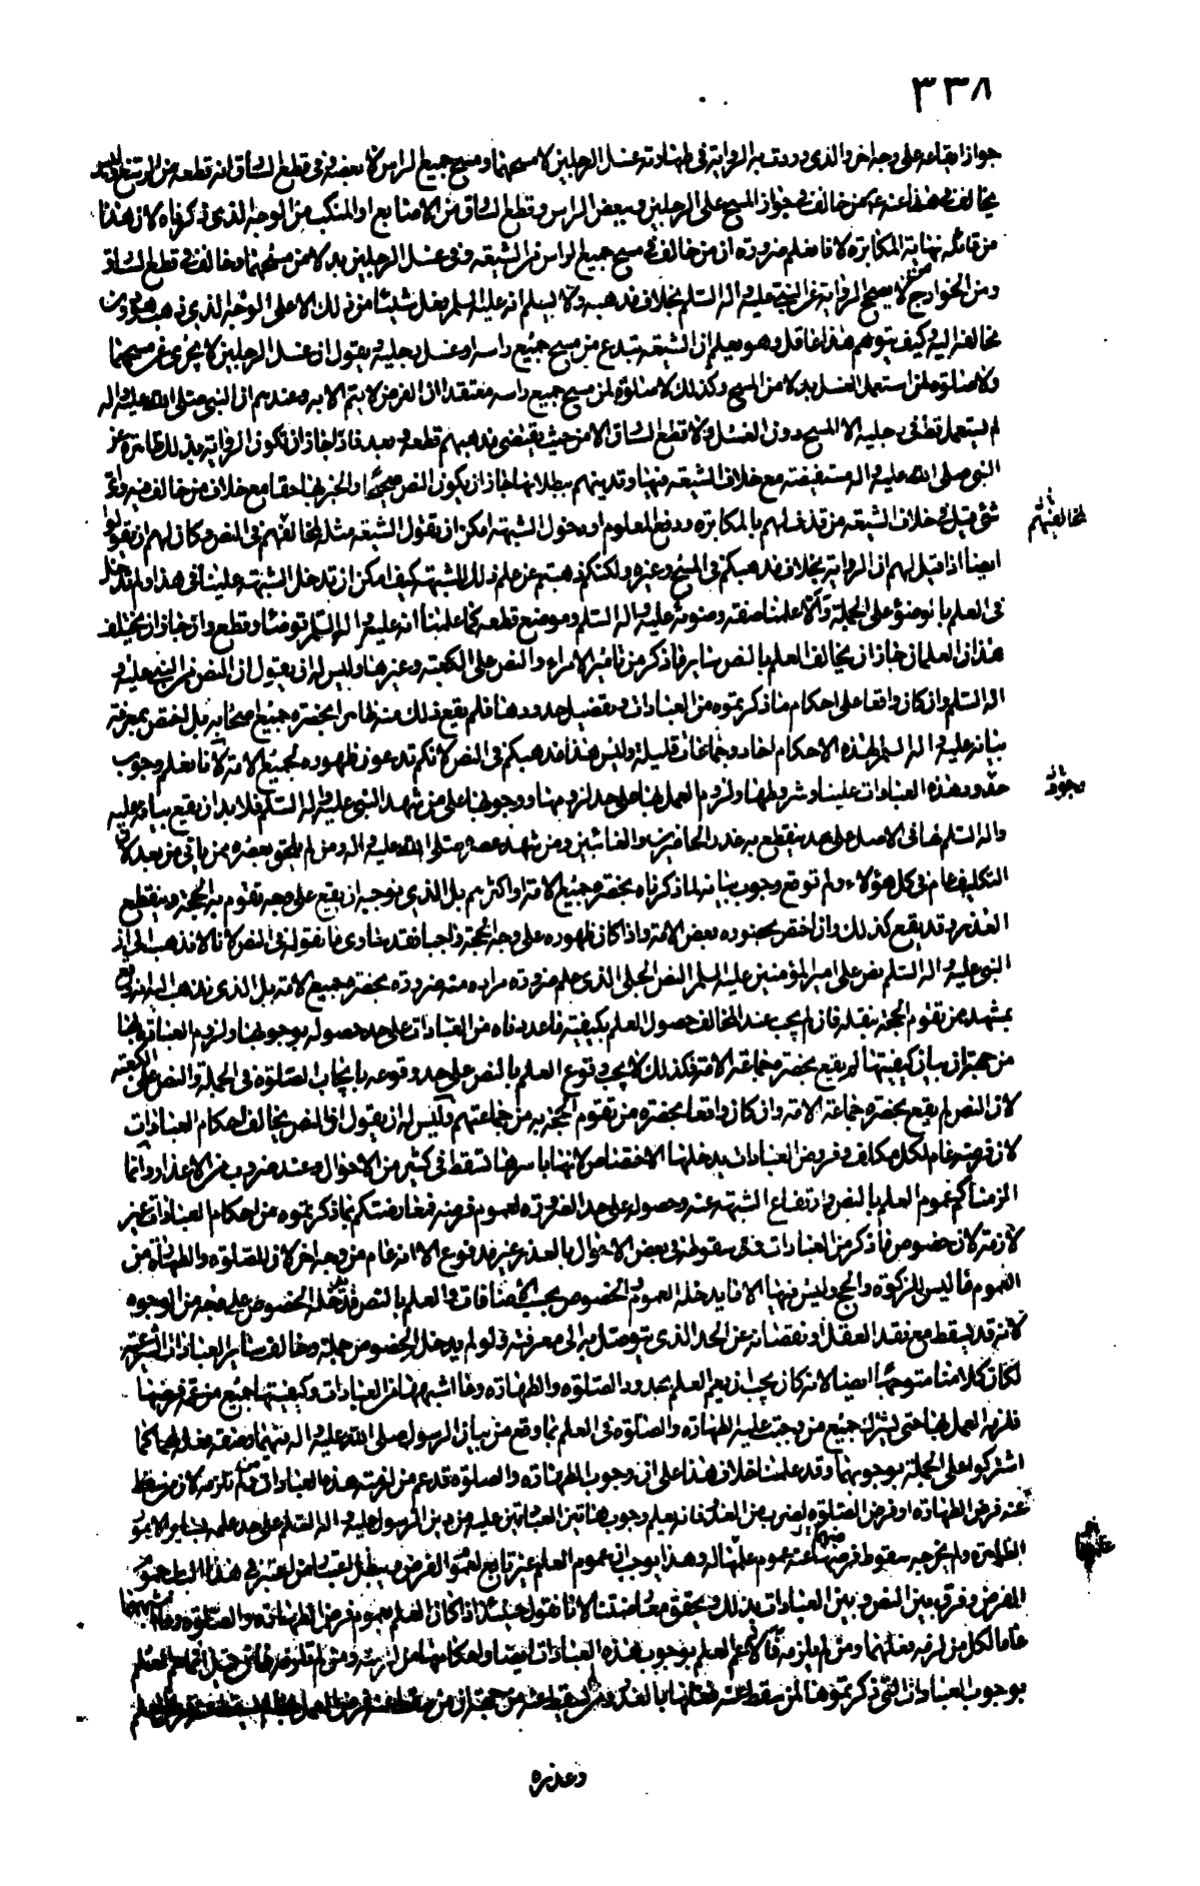 ٣٣٨
جواز ايقاعه على وجه اخر والذى وردت به الرواية فى طهارته غسل الرجلين لا مسحهما ومسح جميع الراس لا بعضه وفى قطع السارق انه قطعه من
يخالف هذا عنه عمن خالف فى جواز المسح على الرجلين وببعض الراس وقطع السارق من الاصابع او المنكب من الوجه الذى ذكرناه لان هذا
من قائله نهاية المكابرة لانا نعلم ضرورة ان من خالف فى مسح جميع الراس من الشيعة وفى غسل الرجلين بدلا من مسحهما وخالف فى قطع السارق
ومن الخوارج لا يصحح الرواية عن النبى عليه واله السلم بخلاف مذهبه ولا يسلم انه عليه السلم فعل شيئا من ذلك الا على الوجه الذى ذهب هو دون
مخالفه اليه وكيف يتوهم هذا عاقل وهو يعلم ان الشيعة تبدع من مسح جميع راسه او غسل رجليه ويقول ان غسل الرجلين لا يجزى عن مسحهما
ولا صلوة لمن استعمل الغسل بدلا من المسح وكذلك لا صلوة لمن مسح جميع راسه معتقدا ان الفرض لا يتم الا به وعندهم ان النبى صلى الله عليه واله
لم يستعمل قط فى رجليه الا المسح دون الغسل ولا قطع السارق الا من حيث يقتضى مذهبهم قطعه وبعد فاذا جاز ان تكون الرواية بذلك ظاهرة عن
النبى صلى الله عليه واله مستفيضة مع خلاف الشيعة فيها وتدينهم ببطلانها جاز ان يكون النص صحيحا والخبر به حقا مع خلاف من خالف فيه واى
شئ قيل فى خلاف الشيعة من قذف لهم بالمكابرة ودفع المعلوم او دخول الشبهة امكن ان يقول الشيعة مثله لمخالفيهم فى النص وكان لهم ان يقولوا
ايضا اذا قيل لهم ان الرواية بخلاف مذهبكم فى المسح وغيره ولكنكم ذهبتم عن علم ذلك للشبهة كيف امكن ان تدخل الشبهة علينا فى هذا ولم تدخل
فى العلم بانه توضؤ على الجملة والا علمنا صفة وضوئه عليه واله السلم وموضع قطعه كما علمنا انه عليه واله السلم توضأ وقطع وان جاز ان يختلف
هذان العلمان جاز ان يخالف العلم بالنص سائر ما ذكر من تامير الامراء والنص على الكعبة وغيرها وليس له ان يقول ان النص من النبى عليه و
اله السلم وان كان واقعا على احكام ما ذكرتموه من العبادات وتفصيل حدودها فلم يقع ذلك منه ظاهرا بحضرة جميع اصحابه بل اختص بمعرفة
بيانه عليه واله السلم لهذه الاحكام احاد وجماعات قليلة وليس هذا مذهبكم فى النص لانكم تدعون ظهوره لجميع الامة لانا نعلم وجوب
حدود هذه العبادات علينا وشروطها ولزوم العمل بها على حد لزومها ووجوبها على من شهد النبى عليه واله السلم فلا بد ان يقع بيانه عليه
واله السلم لها فى الاصل على حد ينقطع به عذر الحاضرين والغائبين ومن شهد عصره صلى الله عليه واله ومن لم يلحق بعصره ممن ياتى من بعد لان
التكليف عام فى كل هؤلاء ولم نوقع وجوب بيانه لما ذكرناه بحضرة جميع الامة او اكثرهم بل الذى نوجبه ان يقع على وجه تقوم به الحجة وينقطع
العذر وقد يقع كذلك وان اختص بحضوره بعض الامة واذا كان ظهوره على وجه الحجة واجبا فقد ساوى ما نقوله فى النص لانا لا نذهب الى ان
النبى عليه واله السلم نص على امير المؤمنين عليه السلم النص الجلى الذى علم ضرورة مراده منه ضرورة بحضرة جميع الامة بل الذى نذهب اليه انه وقع
بمشهد من تقوم الحجة بنقله فان لم يجب عند المخالف حصول العلم بكيفية ما عددناه من العبادات على حد حصوله بوجوبها ولزوم العبادة بها
من جهة ان بيان كيفيتها لم يقع بحضرة جماعة الامة فكذلك لا يجب وقوع العلم بالنص على حد وقوعه بايجاب الصلوة فى الجملة والنص على الكعبة
لان النص لم يقع بحضرة جماعة الامة وان كان واقعا بحضرة من تقوم الحجة به من جماعتهم وليس له ان يقول ان النص يخالف احكام العبادات
لان فرضه عام لكل مكلف وفروض العبادات يدخلها الاختصاص لانها باسرها تسقط فى كثير من الاحوال وعند ضروب من الاعذار وانما
الزمناكم عموم العلم بالنص وارتفاع الشبهة عنه وحصوله على حد الضرورة لعموم فرضه فمعارضتكم بما ذكرتموه من احكام العبادات غير
لازمة لان خصوص ما ذكر من العبادات فى سقوطه فى بعض الاحوال بالعذر غير مدفوع الا انه عام من وجه اخر لان للصلوة والطهارة من
العموم ما ليس للزكوة والحج وليس فيها الا ما يدخله العموم والخصوص بحسب الاضافات والعلم بالنص قد يدخله الخصوص على وجه من الوجوه
لانه قد يسقط مع فقد العقل او نقصانه عن الحد الذى يتوصل به الى معرفته ولو لم يدخل الخصوص جملة وخالف سائر العبادات الشرعية
لكان كلامنا متوجها ايضا لانه كان يجب ان يعم العلم بحدود الصلوة والطهارة وما اشبههما من العبادات وكيفيتها جميع من عمه فرضها
فلزمه العمل بها حتى يشترك جميع من وجبت عليه الطهارة والصلوة فى العلم بما وقع من بيان الرسول صلى الله عليه واله فيهما وصفة فعله لهما كما
اشتركوا على الجملة بوجوبهما وقد علمنا خلاف هذا على ان وجوب الطهارة والصلوة قد عم من لزمته هذه العبادات ومن لم تلزمه لان من سقط
عنه فرض الطهارة او فرض الصلوة لضرب من العذر فانه يعلم وجوب هاتين العبادتين عليه من دين الرسول عليه واله السلم على حد علمه بسائر الامور
الظاهرة ولم يخرجه سقوط فرضهما عنه عموم علمهما له وهذا يوجب ان عموم العلم غير تابع لعموم الفرض ويبطل اعتبار من اعتبر فى هذا الباب عموم
الفرض وفرق بين النص وبين العبادات بذلك ويحقق معارضتنا لانا نقول حينئذ اذا كان العلم بعموم فرض الطهارة والصلوة وما اشبههما
عاما لكل من لزمه فعلهما ومن لم يلزمه فالا عم العلم بوجوب هذه العبادات ايضا واحكامها من لزمته ومن لم تلزمه فان قيل انما عم العلم
بوجوب العبادات التى ذكرتموها لمن سقط عنه فعلها بالعذر ومن لم يسقط عنه من جهة ان من سقط عنه فرض العمل
وعذره
لمخالفيهم
بحدود